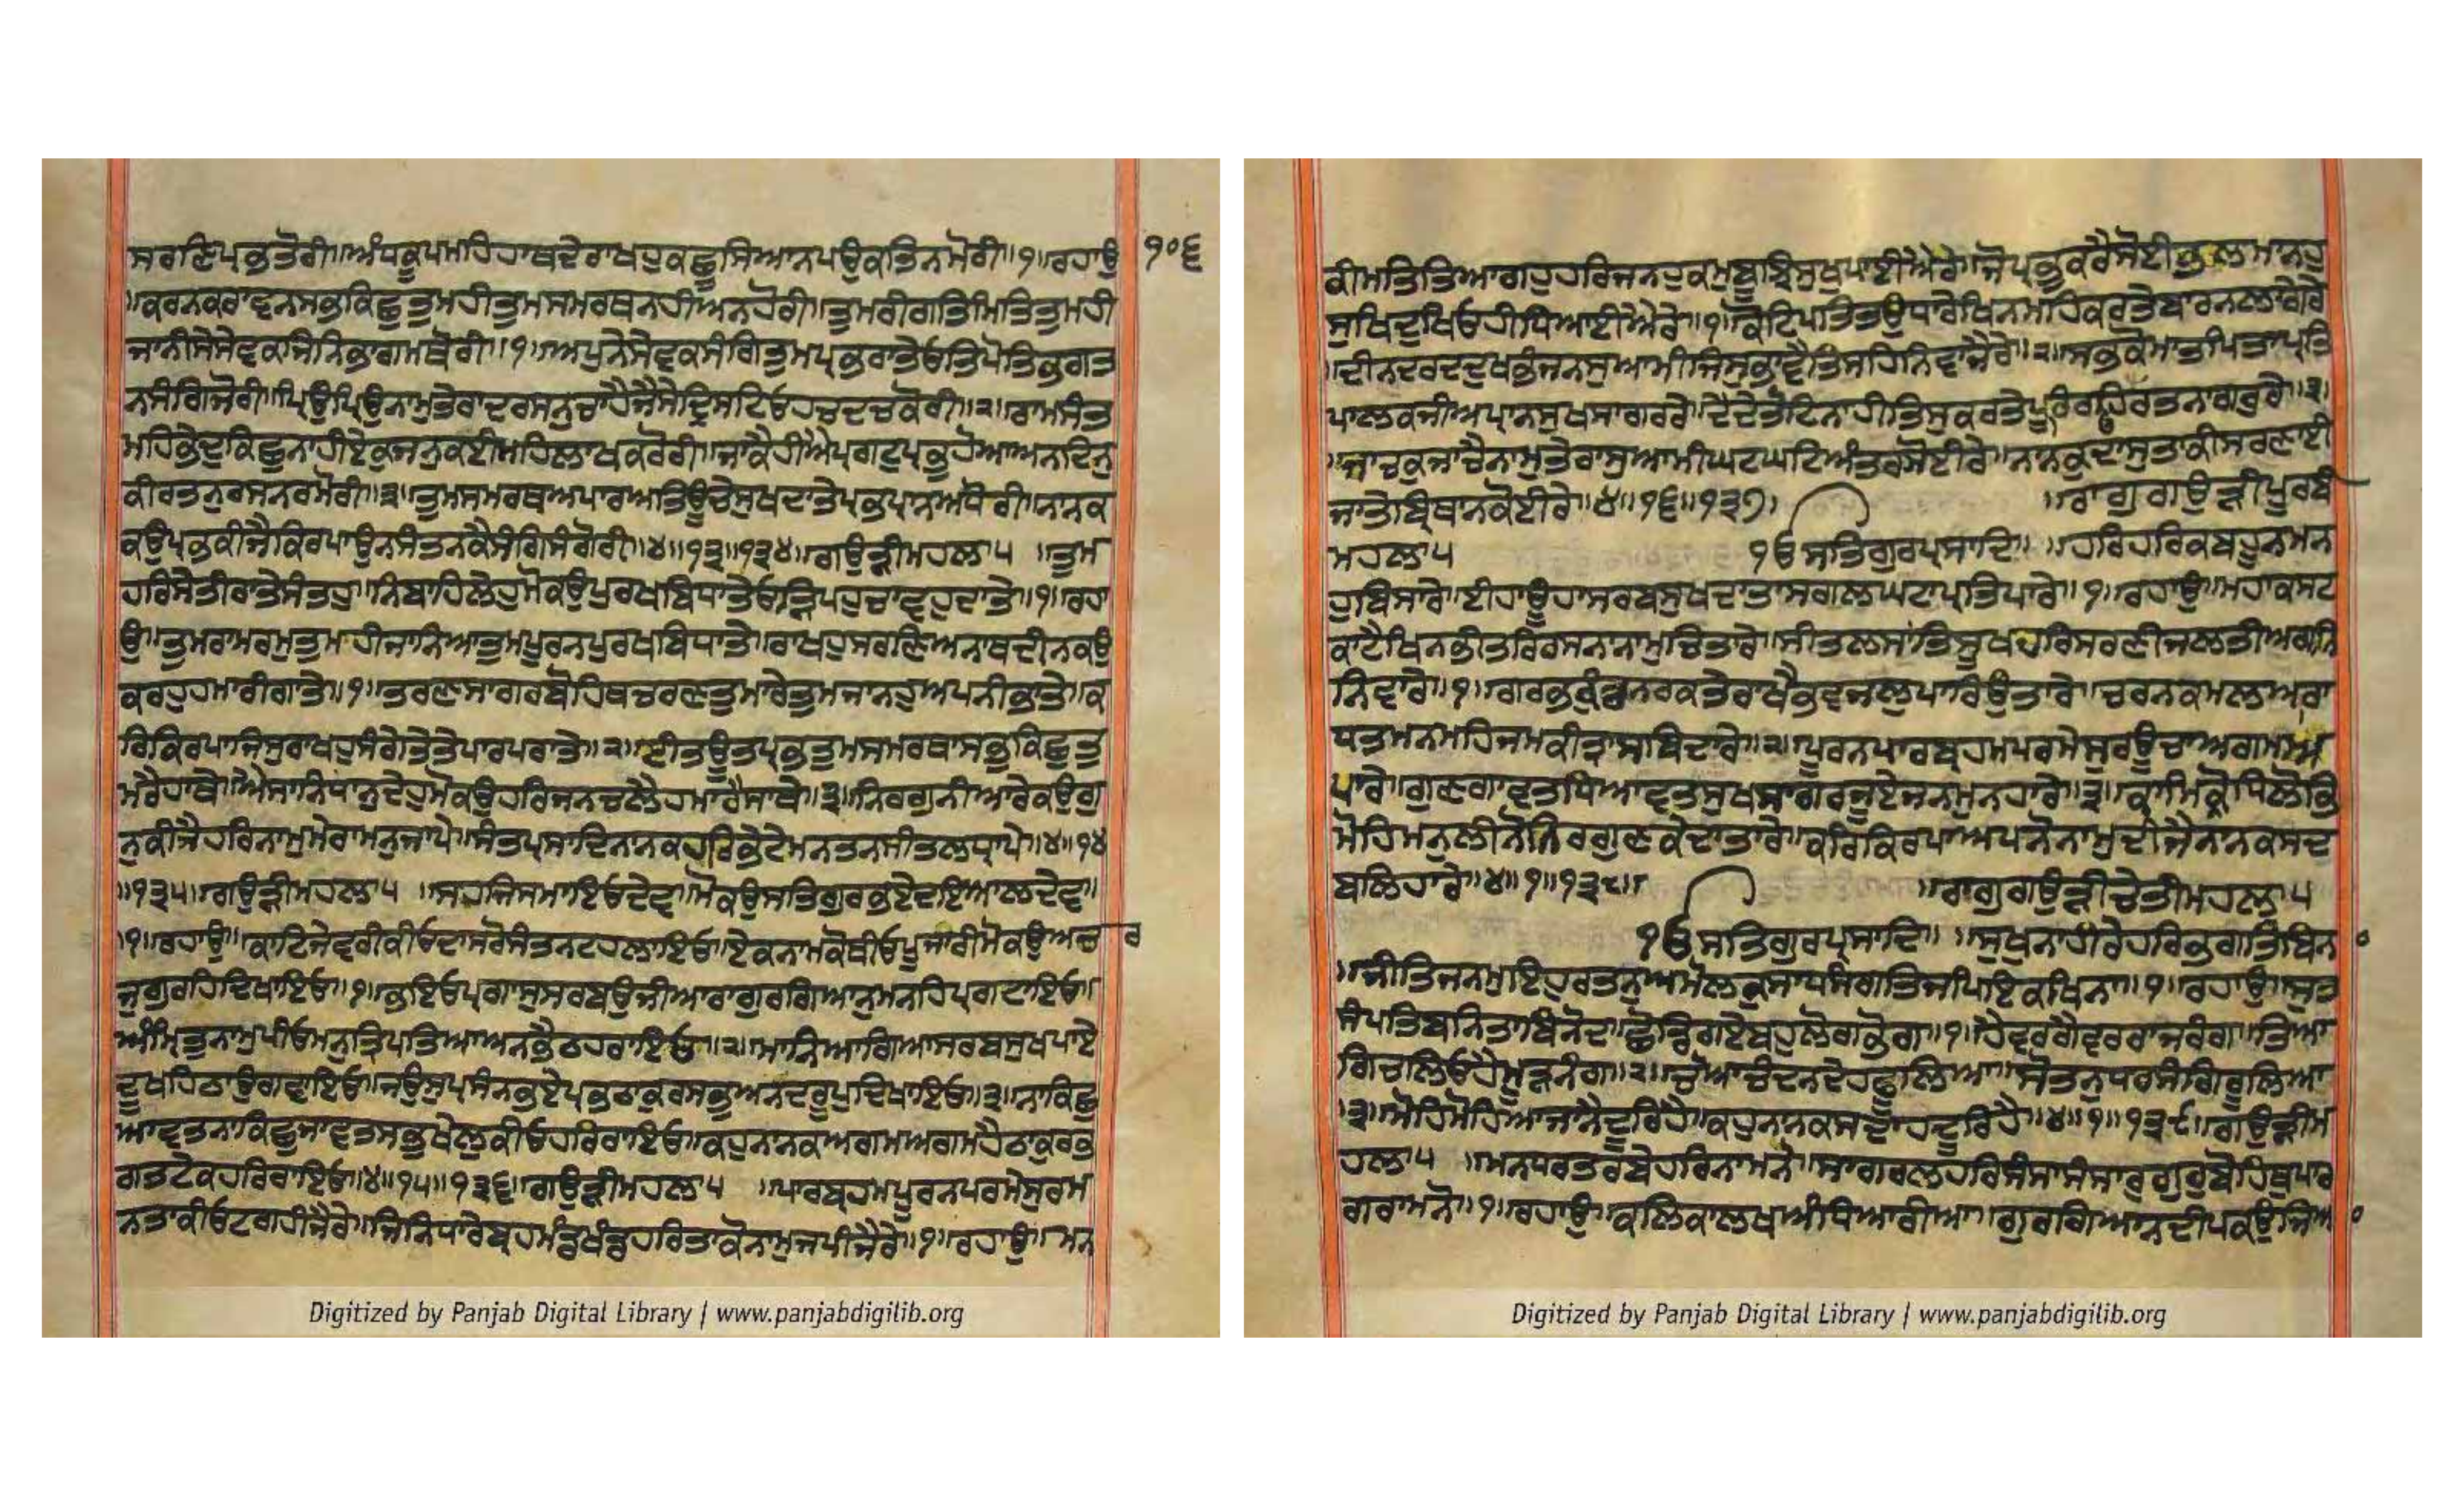 ਸਰਣਿਪ੍ਰਭਤੋਰੀ॥ਅੰਧਕੂਪਮਹਿਹਾਥਦੇਰਾਖਹੁਕਛੂਸਿਆਨਪਉਕਤਿਨਮੋਰੀ॥੧॥ਰਹਾਉ ੧੦੬
॥ਕਰਨਕਰਾਵਨਸਭਕਿਛੁਤੁਮਹੀਤੁਮਸਮਰਥਨਹੀਅਨਹੋਰੀ॥ਤੁਮਰੀਗਤਿਮਿਤਿਤੁਮਹੀ
ਜਾਨੀਸੇਸੇਵਕਜਿਨਿਭਾਗਮਥੋਰੀ॥੧॥ਅਪੁਨੇਸੇਵਕਸੰਗਿਤੁਮਪ੍ਰਭਰਾਤੇਓਤਿਪੋਤਿਭਗਤ
ਨਸੰਗਿਜੋਰੀ॥ਪ੍ਰਿਉਪ੍ਰਿਉਨਾਮੁਤੇਰਾਦਰਸਨੁਚਾਹੈਜੈਸੇਦ੍ਰਿਸਟਿਓਹਚੰਦਚਕੋਰੀ॥੨॥ਰਾਮਸੰਤ
ਮਹਿਭੇਦੁਕਿਛੁਨਾਹੀਏਕੁਜਨੁਕਈਮਹਿਲਾਖਕਰੋਰੀ॥ਜਾਕੈਹੀਐਪ੍ਰਗਟੁਪ੍ਰਭੁਹੋਆਅਨਦਿਨੁ
ਕੀਰਤਨੁਰਸਨਰਮੋਰੀ॥੩॥ਤੁਮਸਮਰਥਅਪਾਰਅਤਿਊਚੇਸੁਖਦਾਤੇਪ੍ਰਭਪ੍ਰਾਨਅਧੋਰੀ॥ਨਾਨਕ
ਕਉਪ੍ਰਭਕੀਜੈਕਿਰਪਾਉਨਸੰਤਨਕੈਸੰਗਿਸੰਗੋਰੀ॥੪॥੧੩॥੧੩੪॥ਗਉੜੀਮਹਲਾ੫ ॥ਤੁਮ
ਹਰਿਸੇਤੀਰਾਤੇਸੰਤਹੁ॥ਨਿਬਾਹਿਲੇਹੁਮੋਕਉਪੁਰਖਬਿਧਾਤੇਓੜਿਪਹੁਚਾਵਹੁਦਾਤੇ॥੧॥ਰਹਾ
ਉ॥ਤੁਮਰਾਮਰਮੁਤੁਮਾਹੀਜਾਨਿਆਤੁਮਪੂਰਨਪੁਰਖਬਿਧਾਤੇ॥ਰਾਖਹੁਸਰਣਿਅਨਾਥਦੀਨਕਉ
ਕਰਹੁਹਮਾਰੀਗਾਤੇ॥੧॥ਤਰਣਸਾਗਰਬੋਹਿਥਚਰਣਤੁਮਾਰੇਤੁਮਜਾਨਹੁਅਪਨੀਭਾਤੇ॥ਕ
ਰਿਕਿਰਪਾਜਿਸੁਰਾਖਹੁਸੰਗੇਤੇਤੇਪਾਰਪਰਾਤੇ॥੨॥ਈਤਊਤਪ੍ਰਭਤੁਮਸਮਰਥਾਸਭੁਕਿਛੁਤੁ
ਮਰੈਹਾਥੇ॥ਐਸਾਨਿਧਾਨੁਦੇਹੁਮੋਕਉਹਰਿਜਨਚਲੈਹਮਾਰੈਸਾਥੇ॥੩॥ਨਿਰਗੁਨੀਆਰੇਕਉਗੁ
ਨੁਕੀਜੈਹਰਿਨਾਮੁਮੇਰਾਮਨੁਜਾਪੇ॥ਸੰਤਪ੍ਰਸਾਦਿਨਾਨਕਹਰਿਭੇਟੇਮਨਤਨਸੀਤਲਧ੍ਰਾਪੇ॥੪॥੧੪
॥੧੩੫॥ਗਉੜੀਮਹਲਾ੫ ॥ਸਹਜਿਸਮਾਇਓਦੇਵ॥ਮੋਕਉਸਤਿਗੁਰਭਏਦਇਆਲਦੇਵ॥
੧॥ਰਹਾਉ॥ਕਾਟਿਜੇਵਰੀਕੀਓਦਾਸਰੋਸੰਤਨਟਹਲਾਇਓ॥ਏਕਨਾਮਕੋਥੀਓਪੂਜਾਰੀਮੋਕਉਅਚਰ
ਜੁਗੁਰਹਿਦਿਖਾਇਓ॥੧॥ਭਇਓਪ੍ਰਗਾਸੁਸਰਬਉਜੀਆਰਾਗੁਰਗਿਆਨੁਮਨਹਿਪ੍ਰਗਟਾਇਓ॥
ਅੰਮ੍ਰਿਤੁਨਾਮੁਪੀਓਮਨੁਤ੍ਰਿਪਤਿਆਅਨਭੈਠਹਰਾਇਓ॥੨॥ਮਾਨਿਆਗਿਆਸਰਬਸੁਖਪਾਏ
ਦੂਖਹਿਠਾਉਗਵਾਇਓ॥ਜਉਸੁਪ੍ਰਸੰਨਭਏਪ੍ਰਭਠਾਕੁਰਸਭੁਅਨਦਰੂਪੁਦਿਖਾਇਓ॥੩॥ਨਾਕਿਛੁ
ਆਵਤਨਾਕਿਛੁਜਾਵਤਸਭੁਖੇਲੁਕੀਓਹਰਿਰਾਇਓ॥ਕਹੁਨਾਨਕਅਗਮਅਗਮਹੈਠਾਕੁਰਭ
ਗਤਟੇਕਹਰਿਰਾਇਓ॥੪॥੧੫॥੧੩੬॥ਗਉੜੀਮਹਲਾ੫ ॥ਪਾਰਬ੍ਰਹਮਪੂਰਨਪਰਮੇਸੁਰਮ
ਨਤਾਕੀਓਟਗਹੀਜੈਰੇ॥ਜਿਨਿਧਾਰੇਬ੍ਰਹਮੰਡਖੰਡਹਰਿਤਾਕੋਨਾਮੁਜਪੀਜੈਰੇ॥੧॥ਰਹਾਉ॥ਮਨ
ਕੀਮਤਿਤਿਆਗਹੁਹਰਿਜਨਹੁਕਮੁਬੂਝਿਸੁਖੁਪਾਈਐਰੇ॥ਜੋਪ੍ਰਭੁਕਰੈਸੋਈਭਲਮਾਨਹੁ
ਸੁਖਿਦੁਖਿਓਹੀਧਿਆਈਐਰੇ॥੧॥ਕੋਟਿਪਤਿਤਉਧਾਰੇਖਿਨਮਹਿਕਰਤੇਬਾਰਨਲਾਗੈਰੇ
॥ਦੀਨਦਰਦਦੁਖਭੰਜਨਸੁਆਮੀਜਿਸੁਭਾਵੈਤਿਸਹਿਨਿਵਾਜੈਰੇ॥੨॥ਸਭਕੋਮਾਤਪਿਤਾਪ੍ਰਤਿ
ਪਾਲਕਜੀਅਪ੍ਰਾਨਸੁਖਸਾਗਰਰੇ॥ਦੇਂਦੇਤੋਟਿਨਾਹੀਤਿਸੁਕਰਤੇਪੂਰਿਰਹਿਓਰਤਨਾਗਰੁਰੇ॥੩॥
॥ਜਾਚਕੁਜਾਚੈਨਾਮੁਤੇਰਾਸੁਆਮੀਘਟਘਟਿਅੰਤਰਸੋਈਰੇ॥ਨਾਨਕੁਦਾਸੁਤਾਕੀਸਰਣਾਈ
ਜਾਤੇਬ੍ਰਿਥਾਨਕੋਈਰੇ॥੪॥੧੬॥੧੩੭॥ ॥ਰਾਗੁਗਉੜੀਪੂਰਬੀ
ਮਹਲਾ੫ ੴਸਤਿਗੁਰਪ੍ਰਸਾਦਿ॥ ॥ਹਰਿਹਰਿਕਬਹੂਨਮਨ
ਹੁਬਿਸਾਰੇ॥ਈਹਾਊਹਾਸਰਬਸੁਖਦਾਤਾਸਗਲਘਟਾਪ੍ਰਤਿਪਾਰੇ॥੧॥ਰਹਾਉ॥ਮਹਾਕਸਟ
ਕਾਟੈਖਿਨਭੀਤਰਿਰਸਨਾਨਾਮੁਚਿਤਾਰੇ॥ਸੀਤਲਸਾਂਤਿਸੂਖਹਰਿਸਰਣੀਜਲਤੀਅਗਨਿ
ਨਿਵਾਰੇ॥੧॥ਗਰਭਕੁੰਡਨਰਕਤੇਰਾਖੈਭਵਜਲੁਪਾਰਿਉਤਾਰੇ॥ਚਰਨਕਮਲਅਰਾ
ਧਤਮਨਮਹਿਜਮਕੀਤ੍ਰਾਸਬਿਦਾਰੇ॥੨॥ਪੂਰਨਪਾਰਬ੍ਰਹਮਪਰਮੇਸੁਰਊਚਾਅਗਮਅ
ਪਾਰੇ॥ਗੁਣਗਾਵਤਧਿਆਵਤਸੁਖਸਾਗਰਜੂਏਜਨਮੁਨਹਾਰੇ॥੩॥ਕਾਮਿਕ੍ਰੋਧਿਲੋਭਿ
ਮੋਹਿਮਨੁਲੀਨੋਨਿਰਗੁਣਕੇਦਾਤਾਰੇ॥ਕਰਿਕਿਰਪਾਅਪਨੋਨਾਮੁਦੀਜੈਨਾਨਕਸਦ
ਬਲਿਹਾਰੇ॥੪॥੧॥੧੩੮॥ ॥ਰਾਗੁਗਉੜੀਚੇਤੀਮਹਲਾ੫
ੴਸਤਿਗੁਰਪ੍ਰਸਾਦਿ॥ ॥ਸੁਖੁਨਾਹੀਰੇਹਰਿਭਗਤਿਬਿਨਾ
॥ਜੀਤਿਜਨਮੁਇਹੁਰਤਨੁਅਮੋਲਕੁਸਾਧਸੰਗਤਿਜਪਿਇਕਖਿਨਾ॥੧॥ਰਹਾਉ॥ਸੁਤ
ਸੰਪਤਿਬਨਿਤਾਬਿਨੋਦ॥ਛੋਡਿਗਏਬਹੁਲੋਗਭੋਗ॥੧॥ਹੈਵਰਗੈਵਰਰਾਜਰੰਗ॥ਤਿਆ
ਗਿਚਲਿਓਹੈਮੂੜਨੰਗ॥੨॥ਚੋਆਚੰਦਨਦੇਹਫੂਲਿਆ॥ਸੋਤਨੁਧਰਸੰਗਿਰੂਲਿਆ
॥੩॥ਮੋਹਿਮੋਹਿਆਜਾਨੈਦੂਰਿਹੈ॥ਕਹੁਨਾਨਕਸਦਾਹਦੂਰਿਹੈ॥੪॥੧॥੧੩੯॥ਗਉੜੀਮ
ਹਲਾ੫ ॥ਮਨਧਰਤਰਬੇਹਰਿਨਾਮਨੋ॥ਸਾਗਰਲਹਰਿਸੰਸਾਸੰਸਾਰੁਗੁਰੁਬੋਹਿਥੁਪਾਰ
ਗਰਾਮਨੋ॥੧॥ਰਹਾਉ॥ਕਲਿਕਾਲਖਅੰਧਿਆਰੀਆ॥ਗੁਰਗਿਆਨਦੀਪਕਉਜਿਆ